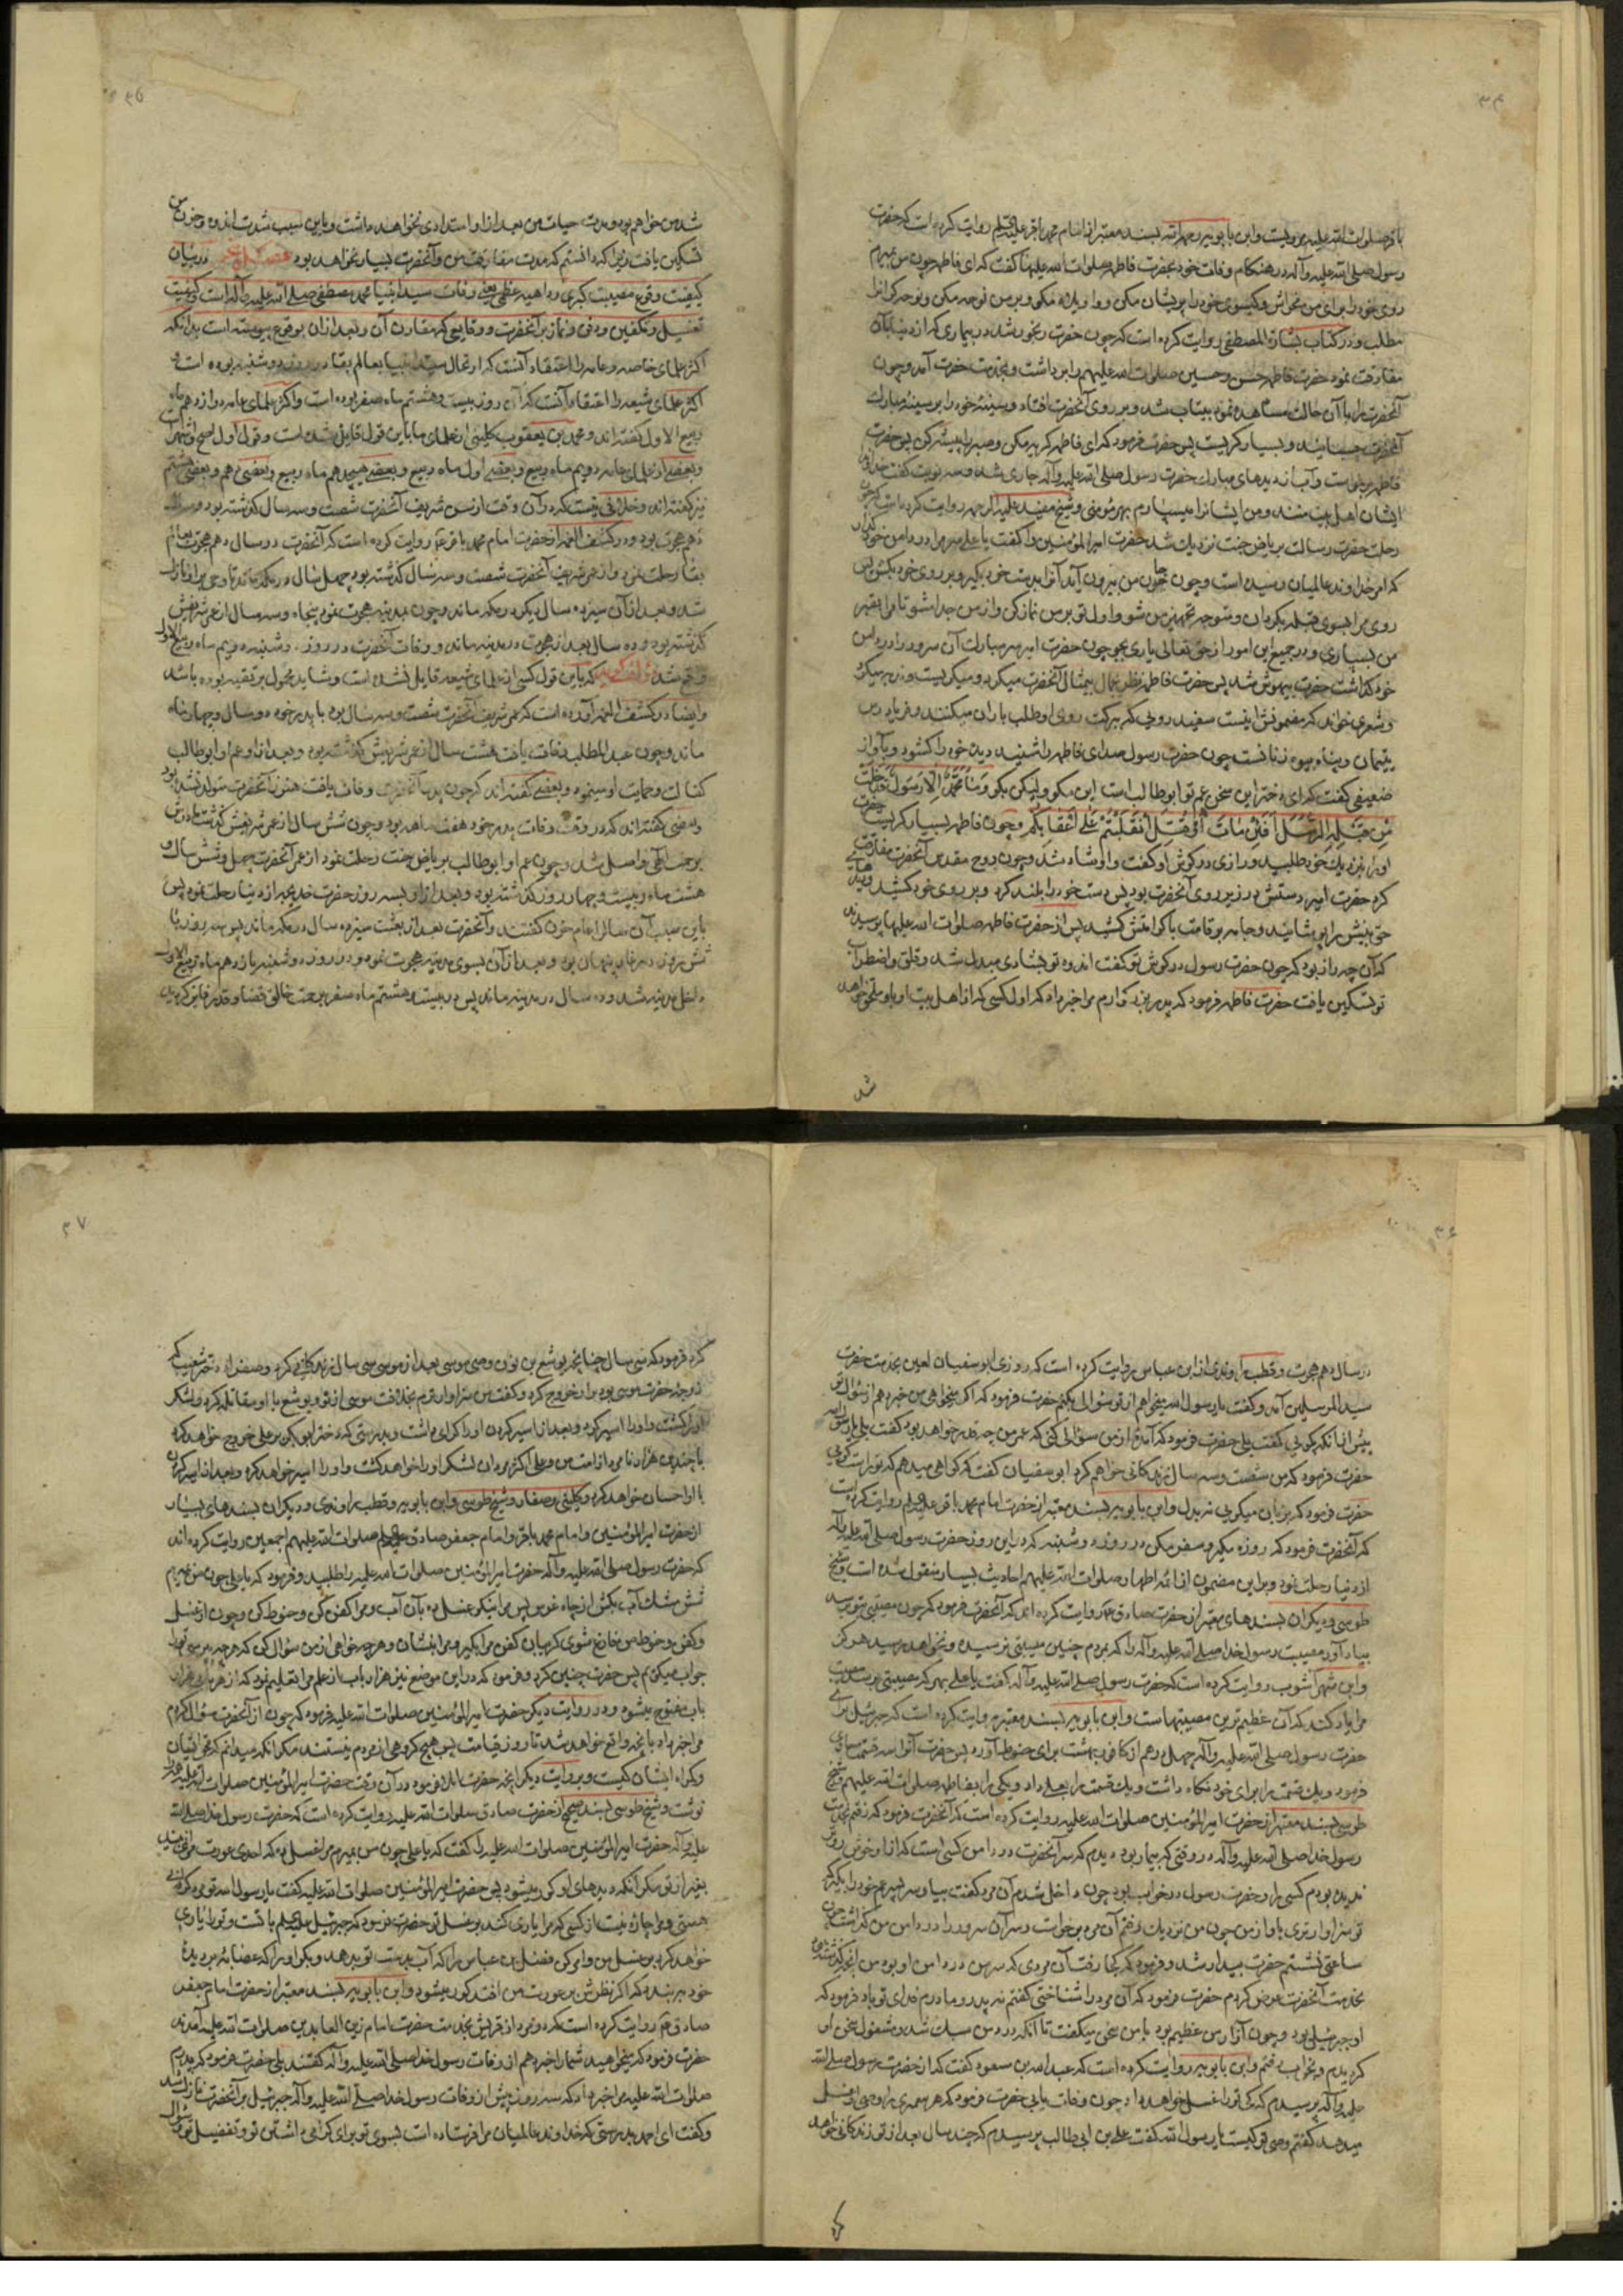 ۳۴
باقر صلوات الله علیه مرویست و ابن بابویه رحمه الله بسند معتبر از امام محمد باقر علیه السلم روایت کرده است که حضرت
رسول صلی الله علیه و آله در هنکام وفات خود بحضرت فاطمه صلوات الله علیها کفت که ای فاطمه چون من بمیرم
روی خود را برای من مخراش و کیسوی خود را پریشان مکن و واویلاه مکو و بر من نوحه مکن و نوحه کرانرا
مطلب و در کتاب بشارة المصطفی روایت کرده است که چون حضرت رنجور شد در بیماری که از دنیا بآن
مفارقت نمود حضرت فاطمه حسن و حسین صلوات الله علیهم را برداشت و بخدمت حضرت آمد و چون
آنحضرت را با آن حالت مشاهده نمود بیتاب شد و بر روی آنحضرت افتاد و سینهٔ خود را بر سینهٔ مبارک
آنحضرت چسبانید و بسیار کریست پس حضرت فرمود که ای فاطمه کریه مکن و صبر را پیشه کن پس حضرت
فاطمه برخواست و آب از دیدهای مبارک حضرت رسول صلی الله علیه و آله جاری شد و سه نوبت کفت خداوندا
ایشان اهل بیت منند و من ایشانرا میسپارم بهر مؤمنی و شیخ مفید علیه الرحمه روایت کرده است که چون
رحلت حضرت رسالت بریاض جنت نزدیک شد حضرت امیر المؤمنین را کفت یا علی سر مرا در دامن خود کذار
که امر خداوند عالمیان رسیده است و چون جان من بیرون آید آنرا بدست خود بکیر و بر روی خود بکش پس
روی مرا بسوی قبله بکردان و متوجه تجهیز من شو و اول تو بر من نماز کن و از من جدا مشو تا مرا بقبر
من بسپاری و در جمیع این امور از حق تعالی یاری بجو چون حضرت امیر سر مبارک آن سرور را در دامن
خود کذاشت حضرت بیهوش شد پس حضرت فاطمه نظر بجمال بیمثال آنحضرت میکرد و میکریست و ندبه میکرد
و شعری خواند که مضمونش اینست سفید رویی که ببرکت روی او طلب باران میکنند و فریاد رس
یتیمان و پناه بیوه زنانست چون حضرت رسول صدای فاطمه را شنید دیدهٔ خود را کشود و بآواز
ضعیفی کفت که ای دختر این سخن عم تو ابو طالب است این مکو ولیکن بکو وَمَا مُحَمَّدٌ اِلَّا رَسُولٌ قَدْ خَلَتْ
مِنْ قَبْلِهِ الرُّسُلُ اَفَاِنْ مَاتَ اَوْ قُتِلَ انْقَلَبْتُمْ عَلٰی اَعْقَابِکُمْ و چون فاطمه بسیار کریست حضرت
او را بنزدیک خود طلبید و رازی در کوش او کفت و او شاد شد و چون روح مقدس آنحضرت مفارقت
کرد حضرت امیر دستش در زیر روی آنحضرت بود پس دست خود را بلند کرد و بر روی خود کشید و دیدهای
حق بینش را پوشانید و جامه بر قامت باکرامتش کشید پس از حضرت فاطمه صلوات الله علیها پرسیدند
که آن چه راز بود که چون حضرت رسول در کوش تو کفت اندوه تو بشادی مبدل شد و قلق و اضطراب
تو تسکین یافت حضرت فاطمه فرمود که پدر بزرکوارم مرا خبر داد که اول کسی که از اهل بیت او باو ملحق خواهد
شد
شد من خواهم بود و مدت حیات من بعد از او امتدادی نخواهد داشت و باین سبب شدت اندوه و حزن من
تسکین یافت زیرا که دانستم که مدت مفارقت من و آنحضرت بسیار نخواهد بود در بیان
کیفیت وقوع مصیبت کبری و داهیهٔ عظمی یعنی وفات سید انبیا محمد مصطفی صلی الله علیه و آله است و کیفیت
تغسیل و تکفین و دفن و نماز بر آنحضرت و وقایعی که مقارن آن و بعد از آن بوقوع پیوسته است بدانکه
اکثر علمای خاصه و عامه را اعتقاد آنست که ارتحال سید انبیا بعالم بقا در روز دوشنبه بوده است و
اکثر علمای شیعه را اعتقاد آنست که آن روز بیست و هشتم ماه صفر بوده است و اکثر علمای عامه دوازدهم ماه
ربیع الاول کفته اند و محمد بن یعقوب کلینی از علمای ما باین قول قایل شده است و قول اول اصح و اشهر است
و بعضی از علمای عامه دویم ماه ربیع و بعضی اول ماه ربیع و بعضی هیجدهم ماه ربیع و بعضی دهم و بعضی هشتم
نیز کفته اند و خلافی نیست که در آن وقت از سن شریف آنحضرت شصت و سه سال کذشته بود و سال
دهم هجرت بود و در کشف الغمه از حضرت امام محمد باقر ع روایت کرده است که آنحضرت در سال دهم هجرت بعالم
بقا رحلت نمود و از عمر شریف آنحضرت شصت و سه سال کذشته بود چهل سال در مکه ماند تا وحی بر او نازل
شد و بعد از آن سیزده سال دیکر در مکه ماند و چون بمدینه هجرت نمود پنجاه و سه سال از عمر شریفش
کذشته بود و ده سال بعد از هجرت در مدینه ماند و وفات آنحضرت در روز دوشنبه دویم ماه ربیع الاول
واقع شد مؤلف کوید که باین قول کسی از علمای شیعه قایل نشده است و شاید محمول بر تقیه بوده باشد
و ایضا در کشف الغمه آورده است که عمر شریف آنحضرت شصت و سه سال بود با پدر خود دو سال و چهار ماه
ماند و چون عبد المطلب وفات یافت هشت سال از عمر شریفش کذشته بود و بعد از او عم او ابو طالب
کفالت و حمایت او مینمود و بعضی کفته اند که چون پدر آنحضرت وفات یافت هنوز آنحضرت متولد نشده بود
و بعضی کفته اند که در وقت وفات پدر خود هفت ماهه بود و چون شش سال از عمر شریفش کذشت مادرش
برحمت الهی واصل شد و چون عم او ابو طالب بریاض جنت رحلت نمود از عمر آنحضرت چهل و شش سال و
هشت ماه و بیست و چهار روز کذشته بود و بعد از او بسه روز حضرت خدیجه از دنیا رحلت نمود پس
باین سبب آن سال را عام حزن کفتند و آنحضرت بعد از بعثت سیزده سال در مکه ماند پس سه روز یا
شش روز در غار پنهان بود و بعد از آن بسوی مدینه هجرت نمود و در روز دوشنبه یازدهم ماه ربیع الاول
داخل مدینه شد و ده سال در مدینه ماند پس در بیست و هشتم ماه صفر
در سال دهم هجرت و قطب راوندی از ابن عباس روایت کرده است که روزی ابو سفیان لعین بخدمت حضرت
سید المرسلین آمد و کفت یا رسول الله میخواهم از تو سؤالی بکنم حضرت فرمود که اکر میخواهی من خبر دهم از سؤال تو
پیش از آنکه بکویی کفت بلی حضرت فرمود که آمدهٔ از من سؤال کنی که عمر من چه قدر خواهد بود کفت بلی یا رسول الله
حضرت فرمود که من شصت و سه سال زندکانی خواهم کرد ابو سفیان کفت که کواهی میدهم که تو راست کویی
حضرت فرمود که بزبان میکویی نه بدل و ابن بابویه بسند معتبر از حضرت امام محمد باقر علیه السلم روایت کرده است
که آنحضرت فرمود که روزه مکیر و سفر مکن در روز دوشنبه که در این روز حضرت رسول صلی الله علیه و آله
از دنیا رحلت نمود و بر این مضمون از ائمه اطهار صلوات الله علیهم احادیث بسیار منقول شده است و شیخ
طوسی و دیکران بسندهای معتبر از حضرت صادق ع روایت کرده اند که آنحضرت فرمود که چون مصیبتی بتو رسد
بیاد آور مصیبت رسول خدا صلی الله علیه و آله را که بمردم چنین مصیبتی نرسیده و نخواهد رسید هرکز
و ابن شهر آشوب روایت کرده است که حضرت رسول صلی الله علیه و آله کفت یا علی بهر که مصیبتی برسد مصیبت
مرا یاد کند که آن عظیم ترین مصیبتهاست و ابن بابویه بسند معتبر روایت کرده است که جبرئیل برای
حضرت رسول صلی الله علیه و آله چهل درهم از کافور بهشت برای حنوط آورد پس حضرت آنرا سه قسمت مساوی
فرمود و یک قسمت را برای خود نکاه داشت و یک قسمت را بعلی داد و یکی را بفاطمه صلوات الله علیهم و شیخ
طوسی بسند معتبر از حضرت امیر المؤمنین صلوات الله علیه روایت کرده است که آنحضرت فرمود که رفتم بخدمت
رسول خدا صلی الله علیه و آله در وقتی که بیمار بود دیدم که سر آنحضرت در دامن کسی است که از او خوش روتر
ندیده بودم کسی را و حضرت رسول در خواب بود چون داخل شدم آن مرد کفت بیا و سر پسر عم خود را بکیر که
تو سزاوارتری باو از من چون من نزدیک رفتم آن مرد برخواست و سر آن سرور را در دامن من کذاشت چون
ساعتی نشستم حضرت بیدار شد و فرمود که کجا رفت آن مردی که سر من در دامن او بود من آنچه کذشته بود
بخدمت آنحضرت عرض کردم حضرت فرمود که آن مرد را شناختی کفتم نه پدر و مادرم فدای تو باد فرمود که
او جبرئیل بود و چون آزار من عظیم بود با من سخن میکفت تا آنکه درد من سبک شد و مشغول سخن او
کردیدم و بخواب رفتم و ابن بابویه روایت کرده است که عبد الله بن مسعود کفت که از حضرت رسول صلی الله
علیه و آله پرسیدم که کی تو را غسل خواهد داد چون وفات یابی حضرت فرمود که هر پیغمبری را وصی او غسل
میدهد کفتم وصی تو کیست یا رسول الله کفت علی بن ابی طالب پرسیدم که چند سال بعد از تو زندکانی خواهد
کرد
۳۷
کرد فرمود که سی سال چنانچه یوشع بن نون وصی موسی بعد از موسی سی سال زندکانی کرد و صفرا دختر شعیب که
زوجهٔ حضرت موسی بود بر او خروج کرد و کفت من سزاوارترم بخلافت موسی از تو و یوشع با او مقاتله کرد و لشکر
او را کشت و او را اسیر کرد و بعد از اسیر کردن او را کرامی داشت و بدرستی که دختر ابو بکر بر علی خروج خواهد کرد
با چندین هزار نامرد از امت من و علی اکثر مردان لشکر او را خواهد کشت و او را اسیر خواهد کرد و بعد از اسیر کردن
با او احسان خواهد کرد و کلینی و صفار و شیخ طوسی و ابن بابویه و قطب راوندی و دیکران بسندهای بسیار
از حضرت امیر المؤمنین و امام محمد باقر و امام جعفر صادق صلوات الله علیهم اجمعین روایت کرده اند
که حضرت رسول صلی الله علیه و آله حضرت امیر المؤمنین صلوات الله علیه را طلبید و فرمود که یا علی چون من بمیرم
شش مشک آب بکش از چاه غرس پس مرا نیکو غسل ده بآن آب و مرا کفن کن و حنوط کن و چون از غسل
و کفن و حنوط من فارغ شوی کریبان کفن مرا بکیر و مرا بنشان و هر چه خواهی از من سؤال کن که هر چه پرسی تو را
جواب میکویم پس حضرت چنین کرد و فرمود که در این موضع نیز هزار باب از علم مرا تعلیم نمود که از هر بابی هزار
باب مفتوح میشود و در روایت دیکر حضرت امیر المؤمنین صلوات الله علیه فرمود که چون از آنحضرت سؤال کردم
مرا خبر داد بآنچه واقع خواهد شد تا روز قیامت پس هیچ کروهی از مردم نیستند مکر آنکه میدانم که محق ایشان
و کمراه ایشان کیست و بروایت دیکر آنچه حضرت املا فرمود در آن وقت حضرت امیر المؤمنین صلوات الله علیه همه را
نوشت و شیخ طوسی بسند صحیح از حضرت صادق صلوات الله علیه روایت کرده است که حضرت رسول خدا صلی الله
علیه و آله حضرت امیر المؤمنین صلوات الله علیه را کفت که یا علی چون من بمیرم مرا غسل بده که احدی عورت مرا نمی بیند
بغیر از تو مکر آنکه دیدهای او کور میشود پس حضرت امیر المؤمنین صلوات الله علیه کفت یا رسول الله تو مرد کرانی
هستی و مرا چاره نیست از کسی که مرا یاری کند بر غسل تو حضرت فرمود که جبرئیل علیه السلم با تست و تو را یاری
خواهد کرد بر غسل من و امر کن فضل بن عباس را که آب بدست تو بدهد و بکو او را که عصابهٔ بر دیدهٔ
خود ببندد که اکر نظرش بر عورت من افتد کور میشود و ابن بابویه بسند معتبر از حضرت امام جعفر
صادق ع روایت کرده است که دو مرد از قریش بخدمت حضرت امام زین العابدین صلوات الله علیه آمدند
حضرت فرمود که میخواهید شما را خبر دهم از وفات رسول خدا صلی الله علیه و آله کفتند بلی حضرت فرمود که پدرم
صلوات الله علیه مرا خبر داد که سه روز پیش از وفات رسول خدا صلی الله علیه و آله جبرئیل بر آنحضرت نازل شد
و کفت ای احمد بدرستی که خداوند عالمیان مرا فرستاده است بسوی تو برای کرامی داشتن تو و تفضیل تو و سؤال